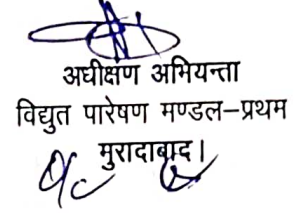 अधीक्षण अभियन्ता
विद्युत पारेषण मण्डल–प्रथम
मुरादाबाद।